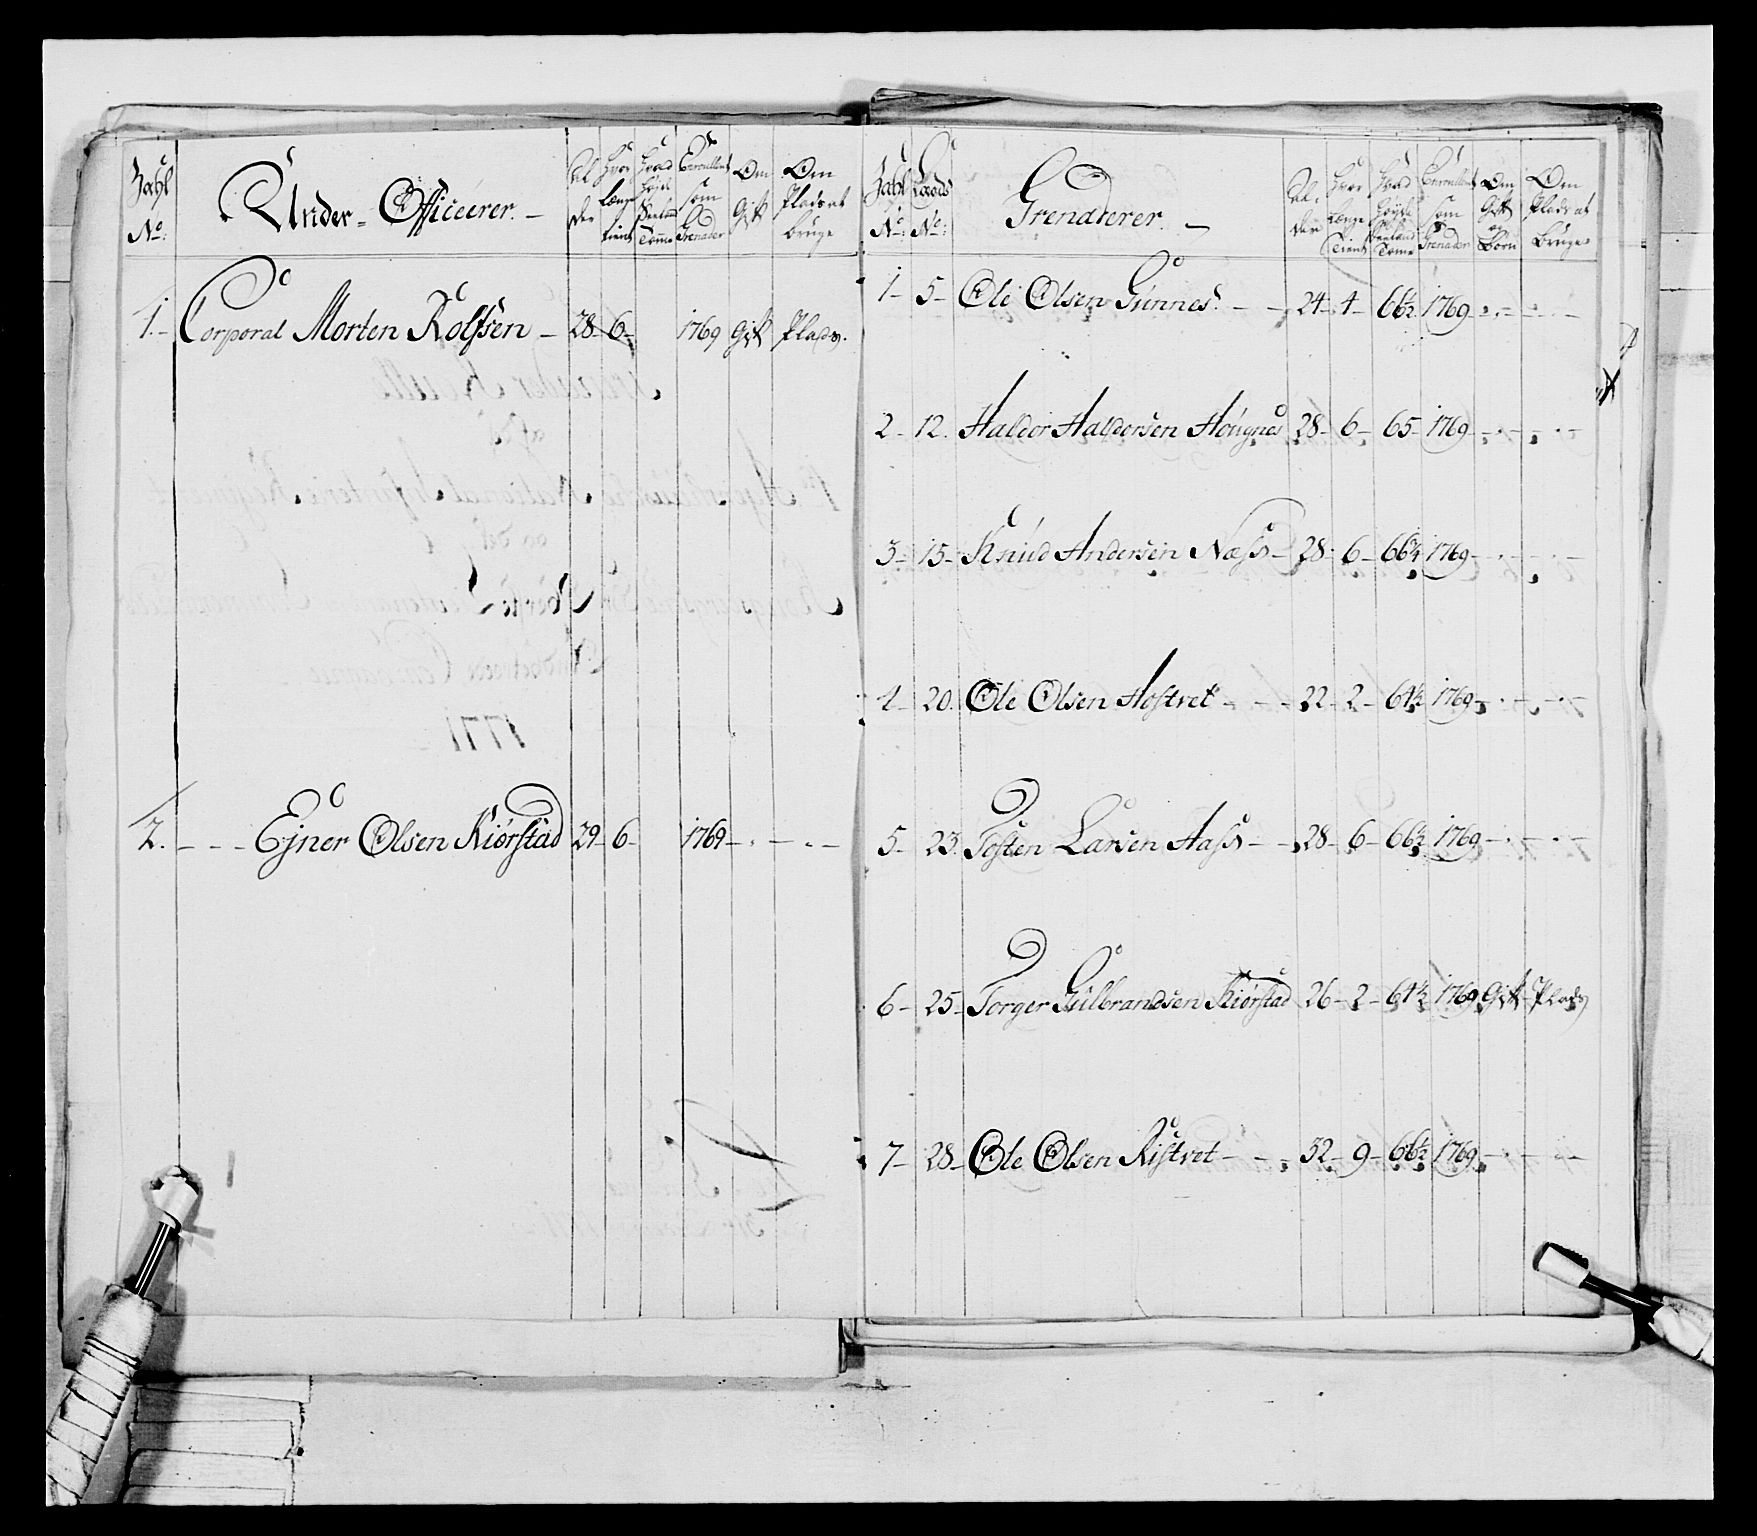 Zahl No: Under-Officeerer. Al der Hvor længe tient Hvad Höyde Seeland Tomme Enroullert som Grenader Om Gift Om Plads at bruge
1. Corporal Morten Rolfsen 28 6 1769 Gift Plads.
2. Ejner Olsen Kiørstad 29 6 1769
Zahl No: Laods No: Grenaderer. Al der Hvor længe Tient Hvad Høyde Seeland Tome Enroullert som Grenader Om Gift og Børn Om Plads at Bruge
1 5 Ole Olsen Gunnes. 24 4 66½ 1769
2 12. Haldor Haldorsen Höugnes 28 6 65 1769
3 15 Knud Andersen Næss 28 6 66¾ 1769
4 20. Ole Olsen Hostvet 22 2 64½ 1769
5 23. Tosten Larsen Aass 28 6 66½ 1769
6 25 Torger Gulbrandsen Kiørstad 26 2 64½ 1769 Gift Plads
7 28 Ole Olsen Ristvet 32 9 66½ 1769